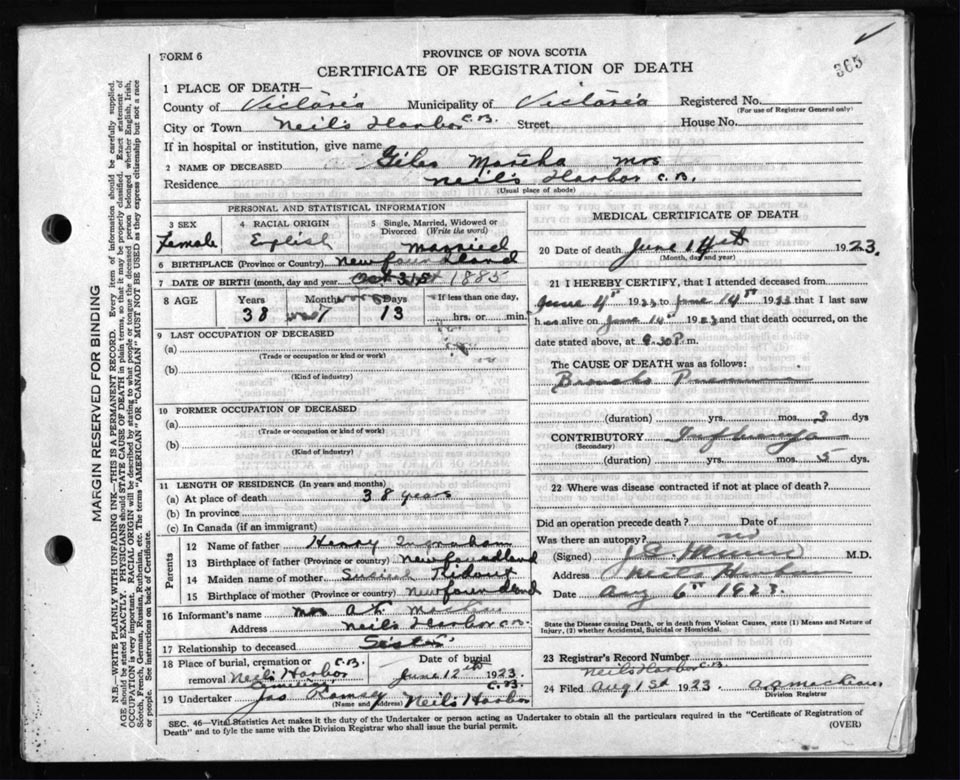 365
FORM 6
PROVINCE OF NOVA SCOTIA
CERTIFICATE OF REGISTRATION OF DEATH
1 PLACE OF DEATH—
County of Victoria Municipality of Victoria Registered No.
(For use of Registrar General only)
City or Town Neil's Harbor C.B. Street House No.
If in hospital or institution, give name
2 NAME OF DECEASED Giles Martha Mrs
Residence Neil's Harbor C.B.
(Usual place of abode)
PERSONAL AND STATISTICAL INFORMATION
3 SEX Female
4 RACIAL ORIGIN English
5 Single, Married, Widowed or Divorced (Write the word) Married
6 BIRTHPLACE (Province or Country) Newfoundland
7 DATE OF BIRTH (month, day and year) Oct 31st 1885
8 AGE Years Months Days If less than one day,
38 7 13 hrs. or min.
9 LAST OCCUPATION OF DECEASED
(a)
(Trade or occupation or kind or work)
(b)
(Kind of industry)
10 FORMER OCCUPATION OF DECEASED
(a)
(Trade or occupation or kind or work)
(b)
(Kind of industry)
11 LENGTH OF RESIDENCE (In years and months)
(a) At place of death 38 years
(b) In province
(c) In Canada (if an immigrant)
Parents
12 Name of father Henry Ingraham
13 Birthplace of father (Province or country) Newfoundland
14 Maiden name of mother
15 Birthplace of mother (Province or country) Newfoundland
16 Informant's name Mrs A.
Address Neils Harbor C.B.
17 Relationship to deceased Sister
18 Place of burial, cremation or removal Neil's Harbor C.B.
Date of burial June 12th 1923
19 Undertaker Jas Ramsey Neils Harbor C.B.
(Name and Address)
MEDICAL CERTIFICATE OF DEATH
20 Date of death June 14th 1923.
(Month, day and year)
21 I HEREBY CERTIFY, that I attended deceased from
June 4th 1923 to June 14th 1923 that I last saw
h alive on June 14th 1923 and that death occurred, on
date stated above, at 8.30 P.m.
The CAUSE OF DEATH was as follows:
Broncho Pneumonia
(duration) yrs. mos. 3 dys
CONTRIBUTORY Influenza
(Secondary)
(duration) yrs. mos. 5 dys.
22 Where was disease contracted if not at place of death?
Did an operation precede death? Date of
Was there an autopsy? no
(Signed) M.D.
Address Neils Harbor
Date Aug 6th 1923.
State the Disease causing Death, or in death from Violent Causes, state (1) Means and Nature of Injury, (2) whether Accidental, Suicidal or Homicidal.
23 Registrar's Record Number
Neils Harbor C.B.
24 Filed Aug 1st 1923
Division Registrar
SEC. 46—Vital Statistics Act makes it the duty of the Undertaker or person acting as Undertaker to obtain all the particulars required in the "Certificate of Registration of
Death" and to fyle the same with the Division Registrar who shall issue the burial permit.
(OVER)
MARGIN RESERVED FOR BINDING
N.B.—WRITE PLAINLY WITH UNFADING INK—THIS IS A PERMANENT RECORD. Every item of information should be carefully supplied.
AGE should be stated EXACTLY. PHYSICIANS should STATE CAUSE OF DEATH in plain terms, so that it may be properly classified. Exact statement of
OCCUPATION is very important. RACIAL ORIGIN will be described by stating to what people or tongue the deceased person belonged whether English, Irish,
Scotch, French, German, Russian, Ruthenian, etc. The terms "AMERICAN" or "CANADIAN" MUST NOT BE USED as they express citizenship but not a race
or people. See instructions on back of Certificate.